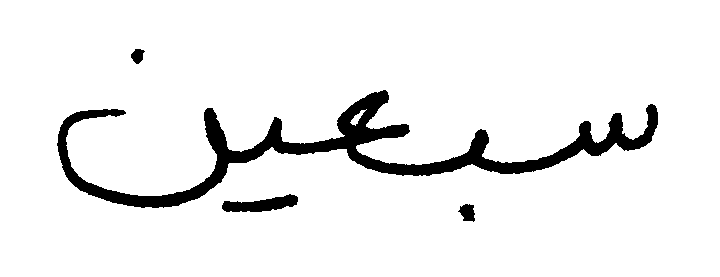 سبعين